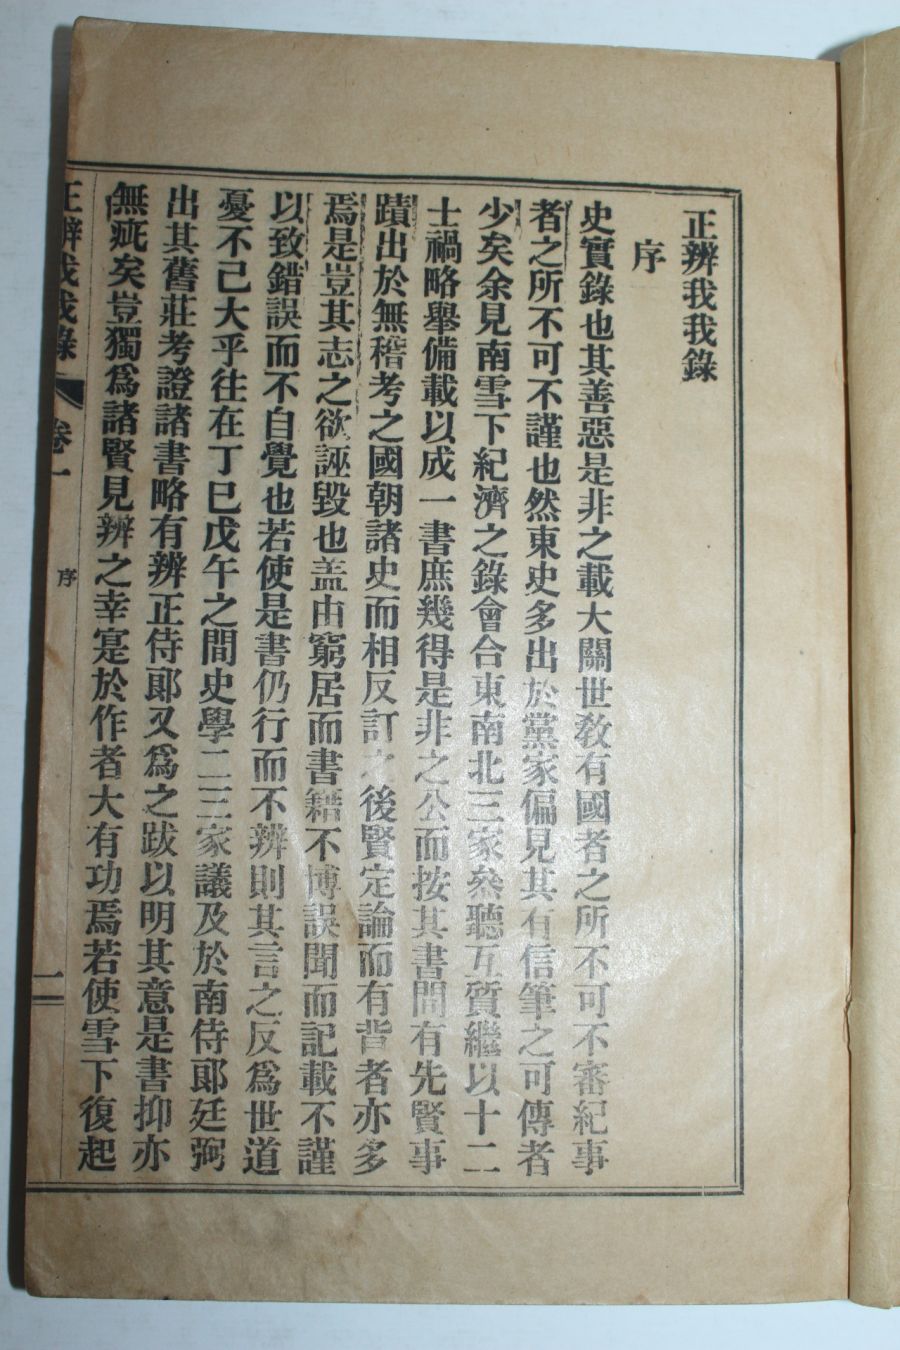 正辨我我錄
序
史實錄也其善惡是非之載大關世敎有國者之所不可不審紀事
者之所不可不謹也然東史多出於黨家偏見其有信筆之可傳者
少矣余見南雪下紀濟之錄會合東南北三家叅聽互質繼以十二
士禍略舉備載以成一書庶幾得是非之公而按其書間有先賢事
蹟出於無稽考之國朝諸史而相反訂之後賢定論而有背者亦多
焉是豈其志之欲誣毀也盖由窮居而書籍不博誤聞而記載不謹
以致錯誤而不自覺也若使是書仍行而不辨則其言之反爲世道
憂不已大乎往在丁巳戊午之間史學二三家議及於南侍郞廷弼
出其舊莊考證諸書略有辨正侍郞又爲之跋以明其意是書抑亦
無疵矣豈獨爲諸賢見辨之幸寔於作者大有功焉若使雪下復起
正辨我我錄 卷一 序 一